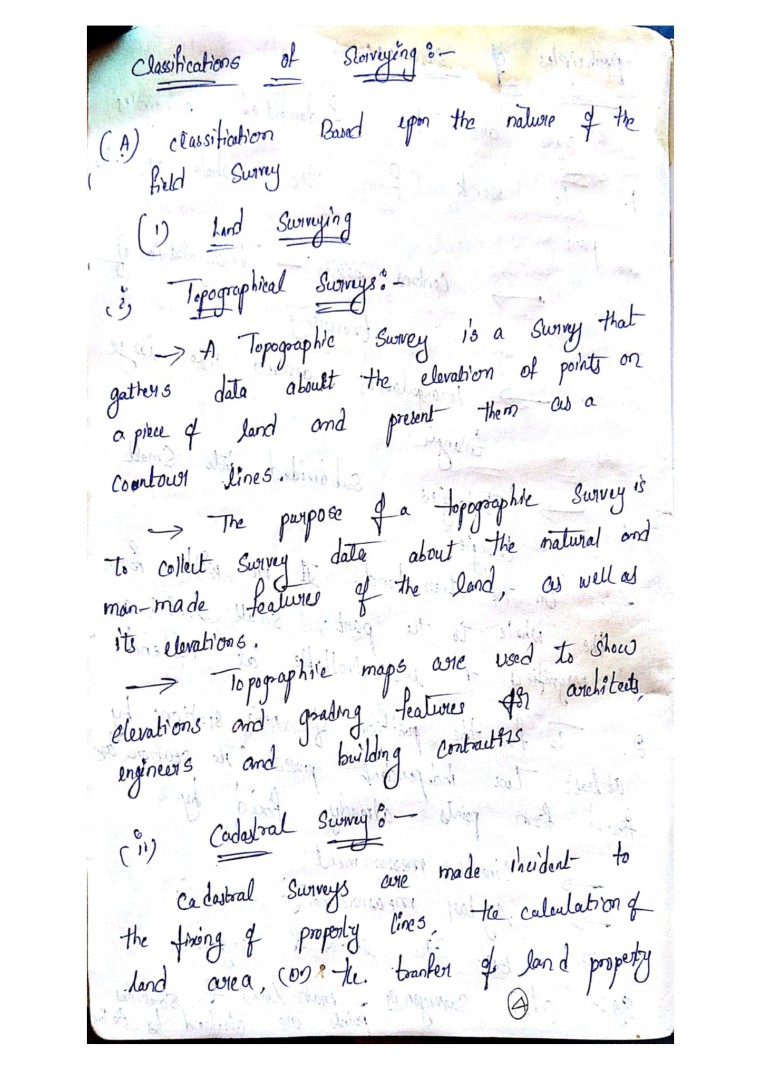 Classifications of Surveying:-
(A) classification Based upon the nature of the
field Survey
(1) Land Surveying
(i) Topographical Surveys:-
→ A Topographic Survey is a Survey that
gathers data about the elevation of points on
a piece of land and present them as a
Contour lines.
→ The purpose of a topographic Survey is
To collect Survey data about the natural and
man-made features of the land, as well as
its elevations.
→ Topographic maps are used to show
elevations and grading features for architects,
engineers and building contractors
(ii) Cadastral Survey:-
Cadastral Surveys are made incident to
the fixing of property lines, the calculation of
land area, (or) the tranfer of land property
4